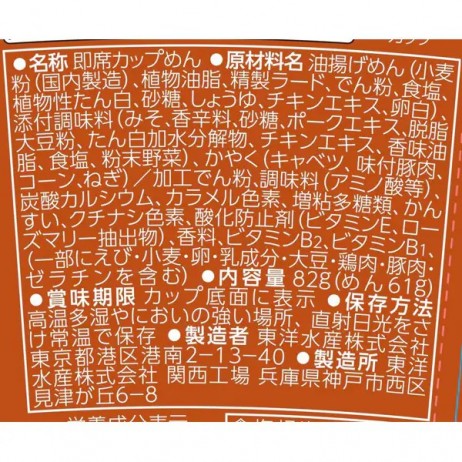 カップ
●名称 即席カップめん ●原材料名 油揚げめん(小麦
粉(国内製造)、植物油脂、精製ラード、でん粉、食塩、
植物性たん白、砂糖、しょうゆ、チキンエキス、卵白)、
添付調味料(みそ、香辛料、砂糖、ポークエキス、脱脂
大豆粉、たん白加水分解物、チキンエキス、香味油
脂、食塩、粉末野菜)、かやく(キャベツ、味付豚肉、
コーン、ねぎ)/加工でん粉、調味料(アミノ酸等)、
炭酸カルシウム、カラメル色素、増粘多糖類、かん
すい、クチナシ色素、酸化防止剤(ビタミンE、ロー
ズマリー抽出物)、香料、ビタミンB2、ビタミンB1、
(一部にえび・小麦・卵・乳成分・大豆・鶏肉・豚肉・
ゼラチンを含む) ●内容量 82g(めん 61g)
●賞味期限 カップ底面に表示 ●保存方法
高温多湿やにおいの強い場所、直射日光をさ
け常温で保存 ●製造者 東洋水産株式会社
東京都港区港南2-13-40 ●製造所 東洋
水産株式会社 関西工場 兵庫県神戸市西区
見津が丘6-8
栄養成分表示